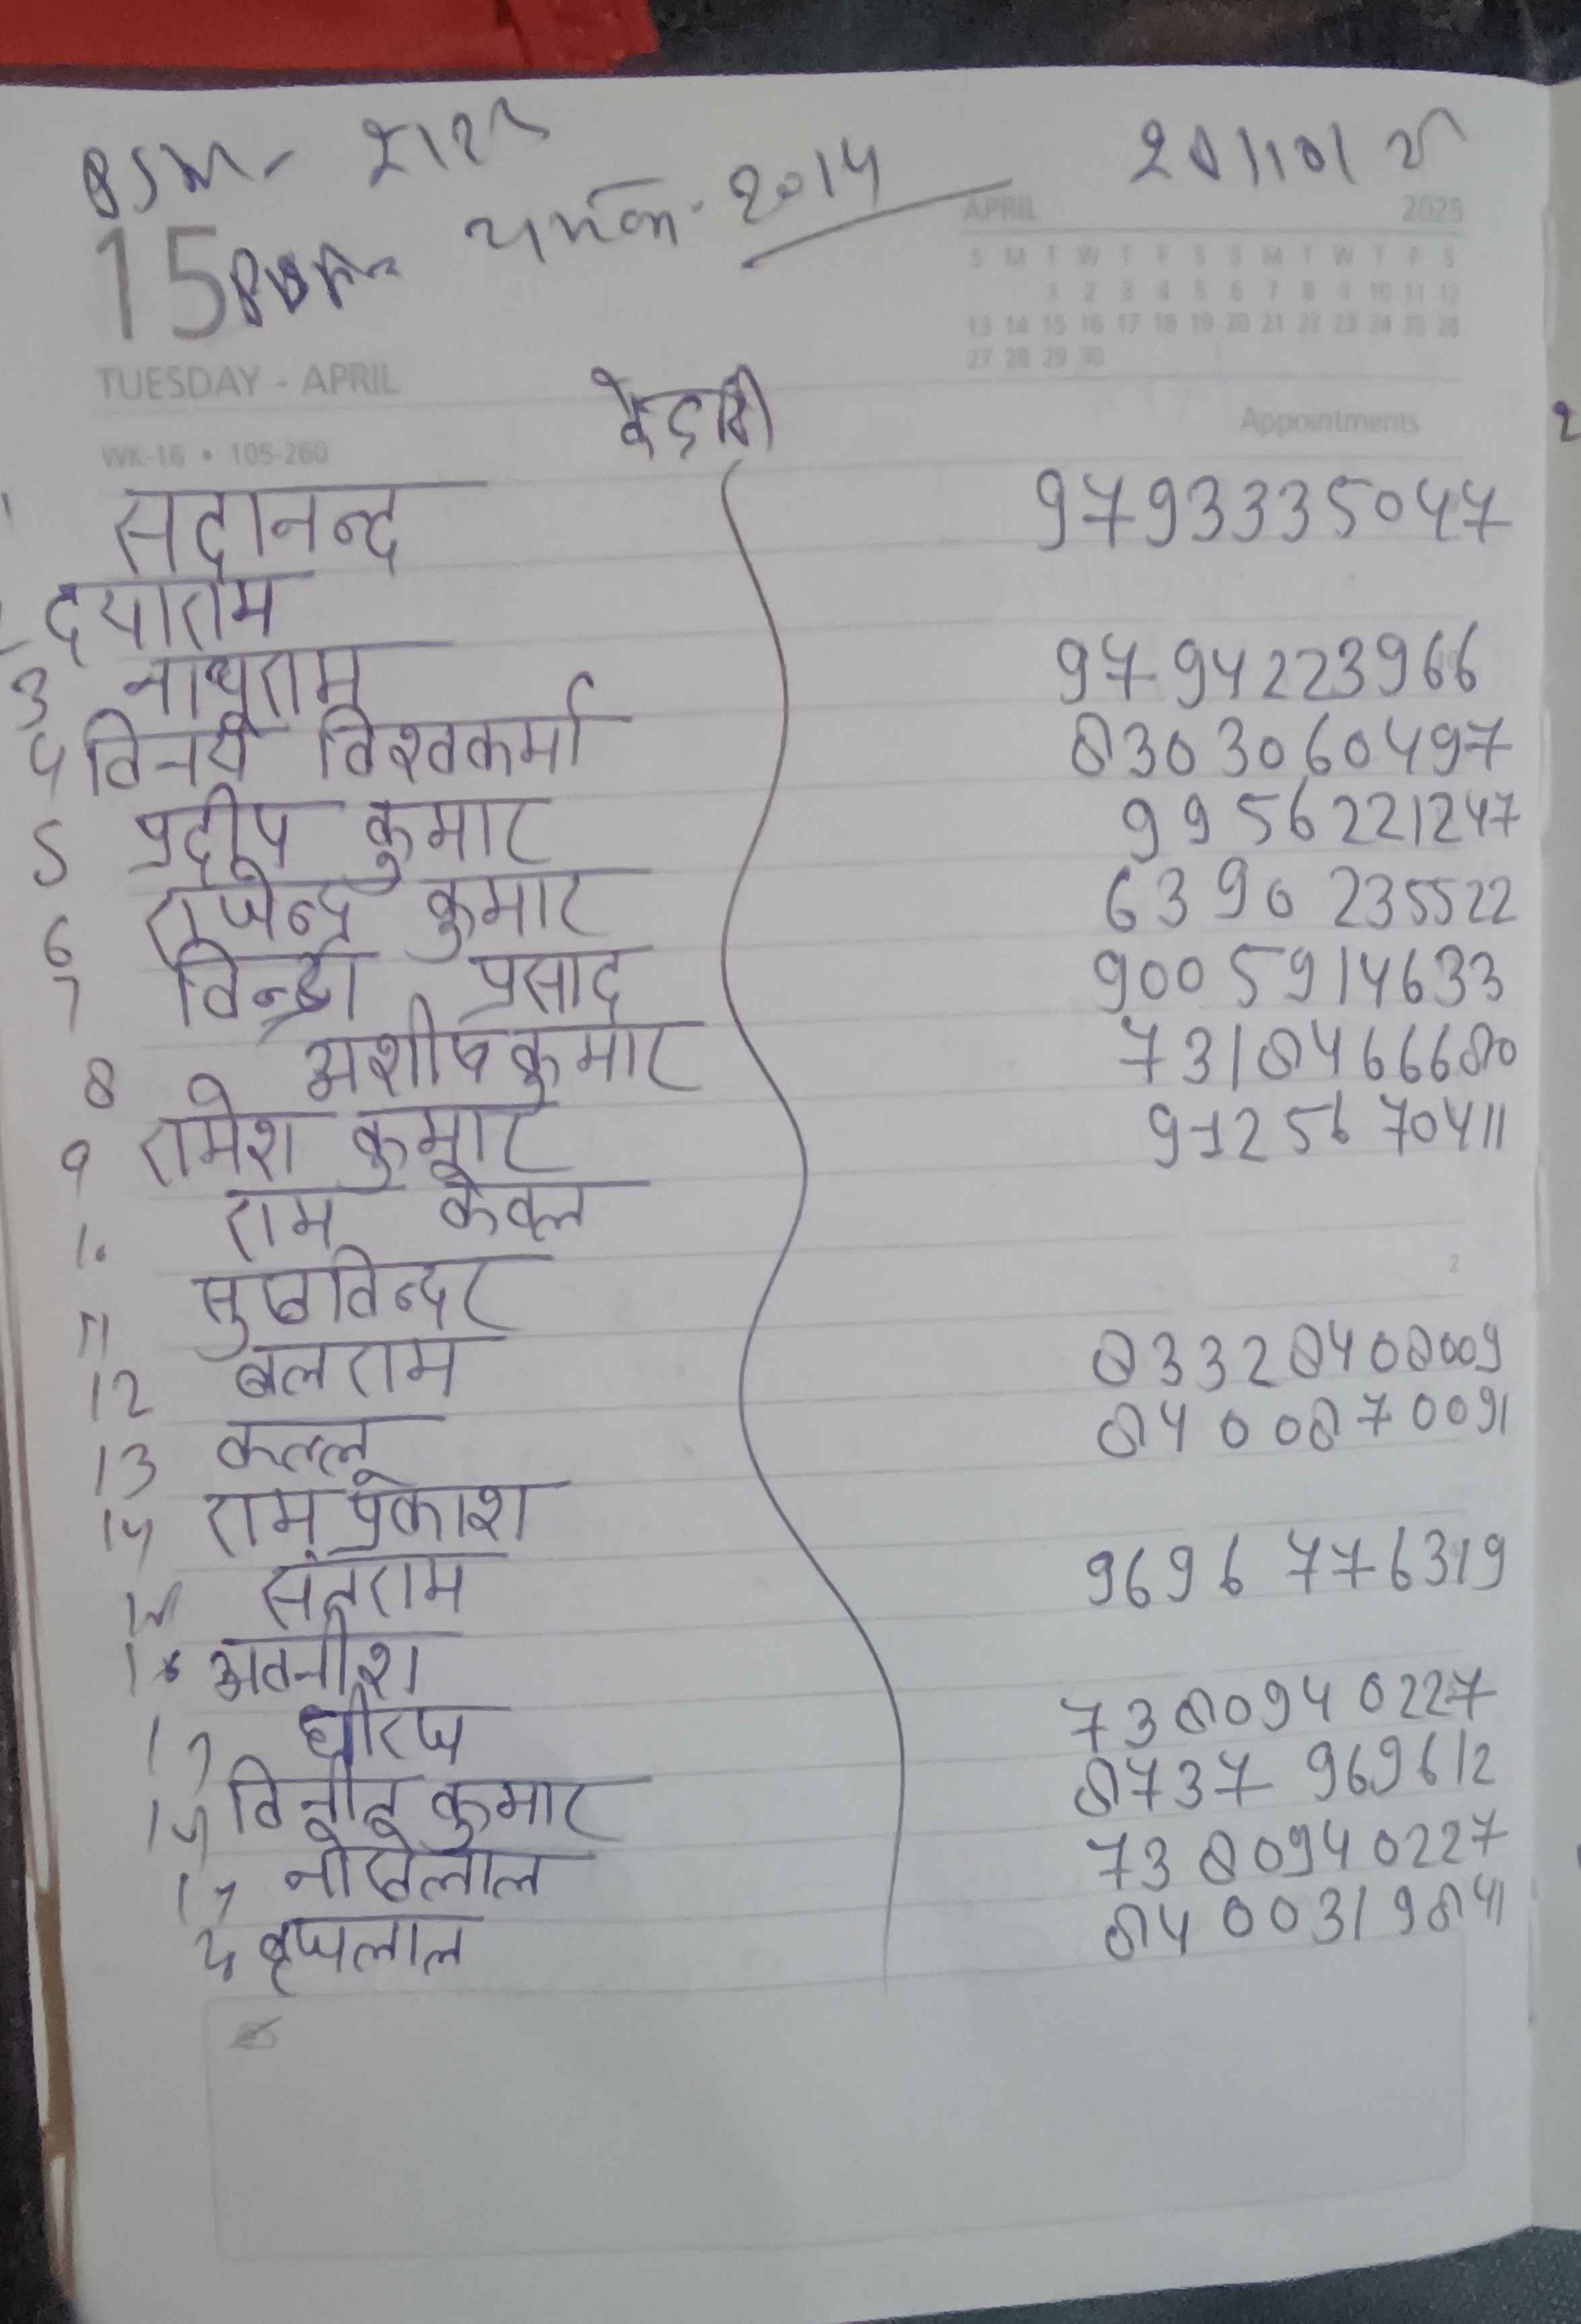 2014
15
APRIL 2025
S M T W T F S S M T W T F S
1 2 3 4 5 6 7 8 9 10 11 12
13 14 15 16 17 18 19 20 21 22 23 24 25 26
27 28 29 30
TUESDAY - APRIL
Appointments
WK-16 • 105-260
सदानन्द 9793335047
दयाराम
3 नाथूराम 9794223966
4 विनय विश्वकर्मा 8303060497
5 प्रदीप कुमार 9956221247
6 राजेन्द्र कुमार 6390235522
7 प्रसाद 9005914633
8 अशीष कुमार 7318466680
9 रामेश कुमार 9125670411
10 राम केवल
11 सुखविन्दर
12 बलराम 83328408009
13 कल्लू 8400870091
14 राम प्रकाश
संतराम 9696776319
16 अवनीश
17 धीरज 7380940227
विनीत कुमार 8737969612
नोखेलाल 7380940227
बृजलाल 8400319841